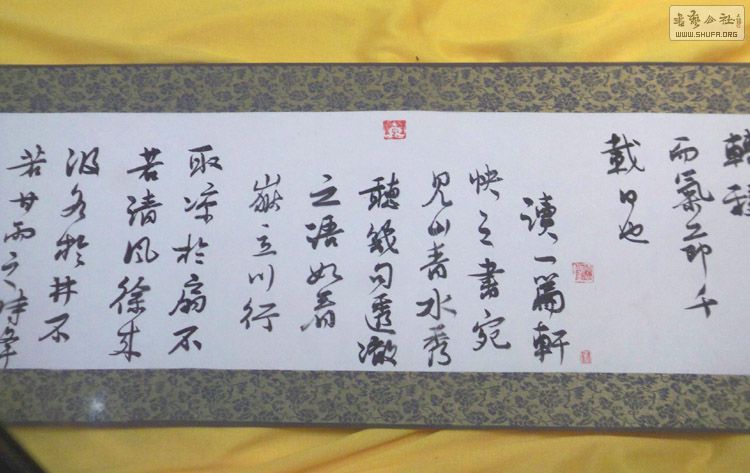 轉移
而氣節千
載日也
讀一篇軒
快之書宛
見山青水秀
聽幾句透澈
之語如看
嶽立川行
取凉於扇不
若清風徐来
汲水於井不
若甘雨之時降
書藝公社
WWW.SHUFA.ORG